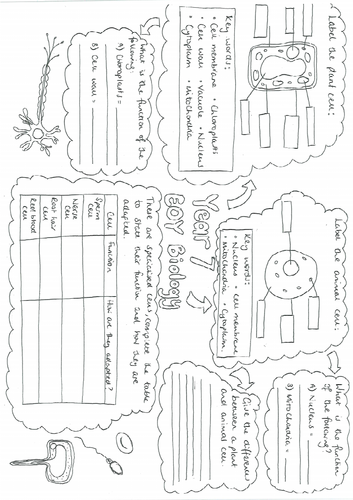 Label the plant cell:
Key words:
• Cell membrane • Chloroplasts
• Cell wall • Vacuole • Nucleus
• Cytoplasm • Mitochondria
Label the animal cell:
Key words:
• Nucleus • cell membrane
• Mitochondria • Cytoplasm
What is the function
of the following?
A) Nucleus =
B) Mitochondria =
Year 7
EOY Biology
Give the difference
between a plant
and animal cell
What is the function of the
following:
A) Chloroplasts =
B) Cell wall =
There are specialised cells, complete the table
to state their function and how they are
adapted.
Cell Function How are they adapted?
Sperm cell
Nerve cell
Root hair cell
Red blood cell